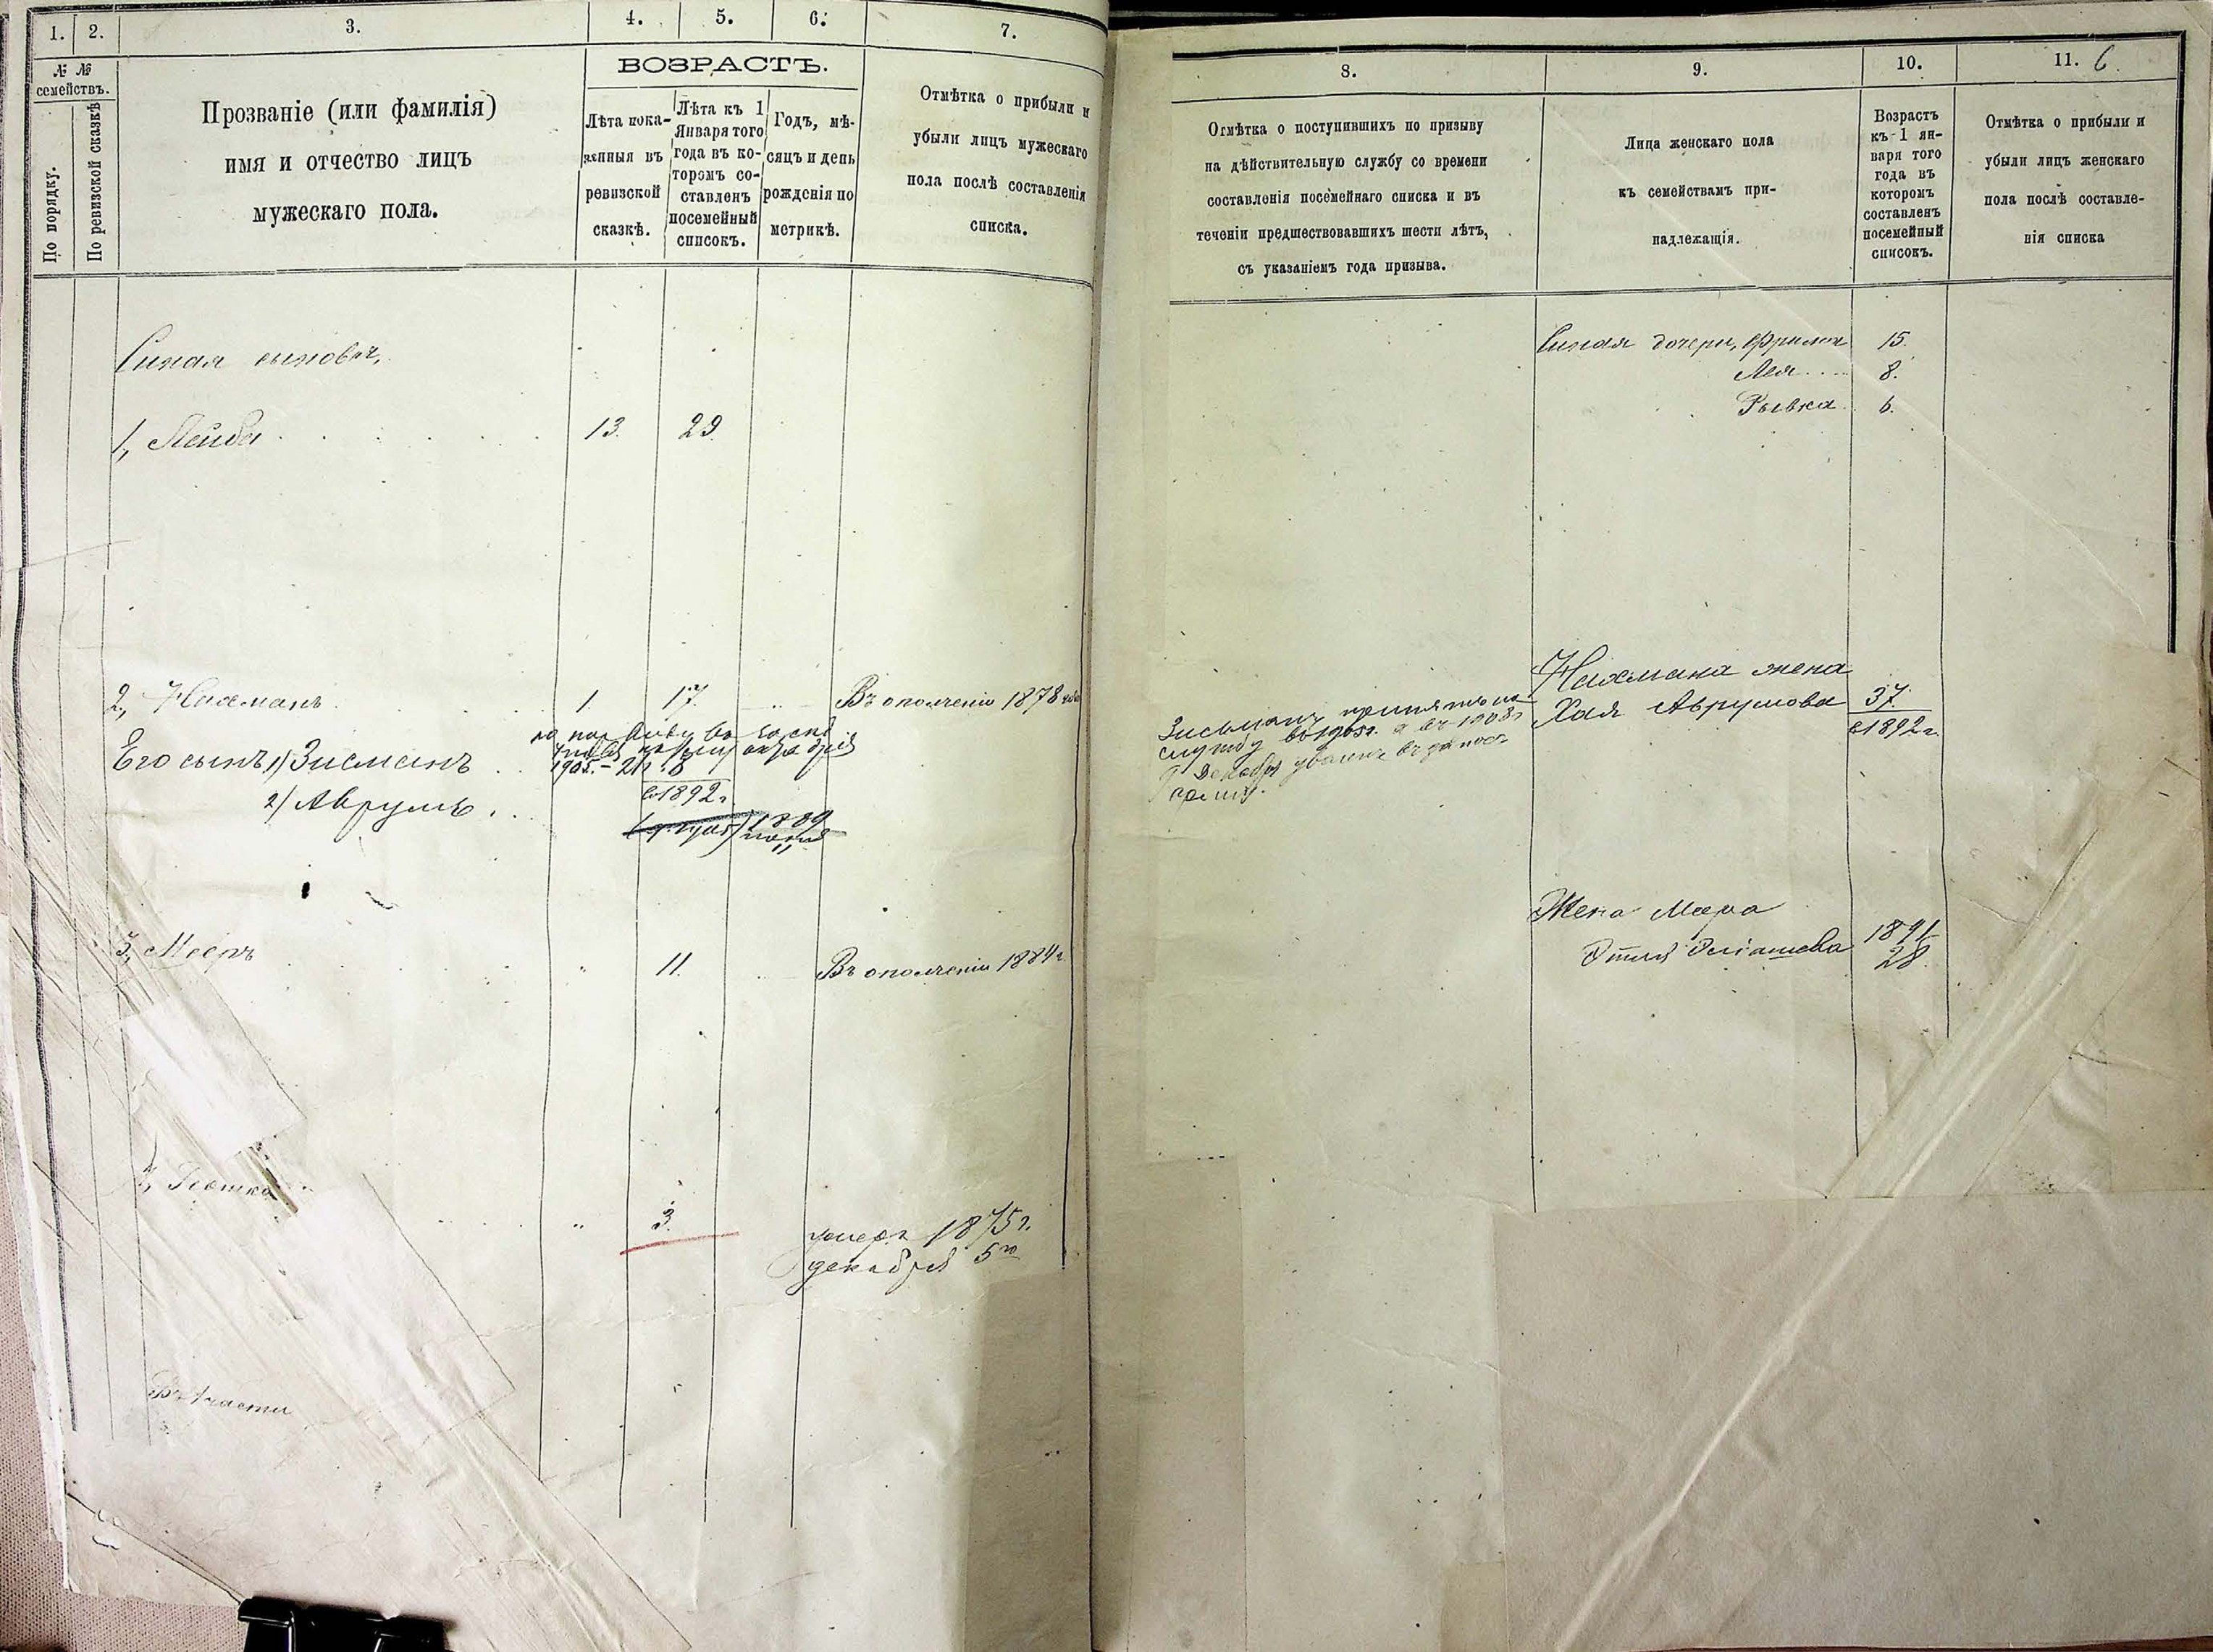 1. 2. 3. 4. 5. 6. 7.
№ № семействъ.
По порядку.
По ревизской сказкѣ
Прозваніе (или фамилія)
имя и отчество лицъ
мужескаго пола.
ВОЗРАСТЪ.
Лѣта пока-
занныя въ
ревизской
сказкѣ.
Лѣта къ 1
Января того
года въ ко-
торомъ со-
ставленъ
посемейный
списокъ.
Годъ, мѣ-
сяцъ и день
рожденія по
метрикѣ.
Отмѣтка о прибыли и
убыли лицъ мужескаго
пола послѣ составленія
списка.
Синая сыновья,
1, Лейба 13. 29.
2, Нахманъ 1. 17. Въ ополченіи 1878
Его сынъ 1) Зисманъ
1905. - 21 8
в 1892 г.
2) Аврумъ
1889
3, Мееръ 11. Въ ополченіи 1884 г.
3.
умеръ 1875 г.
декабря 5го
8. 9. 10. 11. 6.
Отмѣтка о поступившихъ по призыву
на дѣйствительную службу со времени
составленія посемейнаго списка и въ
теченіи предшествовавшихъ шести лѣтъ,
съ указаніемъ года призыва.
Лица женскаго пола
къ семействамъ при-
надлежащія.
Возрастъ
къ 1 ян-
варя того
года въ
которомъ
составленъ
посемейный
списокъ.
Отмѣтка о прибыли и
убыли лицъ женскаго
пола послѣ составле-
нія списка
Синая дочери, Фрима 15.
Лея 8.
Рывка 6.
Зисманъ принятъ на
службу въ 1905 г. а въ 1908 г.
Декабря уволенъ въ запасъ
арміи.
Нахмана жена
Хая Аврумова 37.
в 1892 г.
Жена Меера 1891
28.